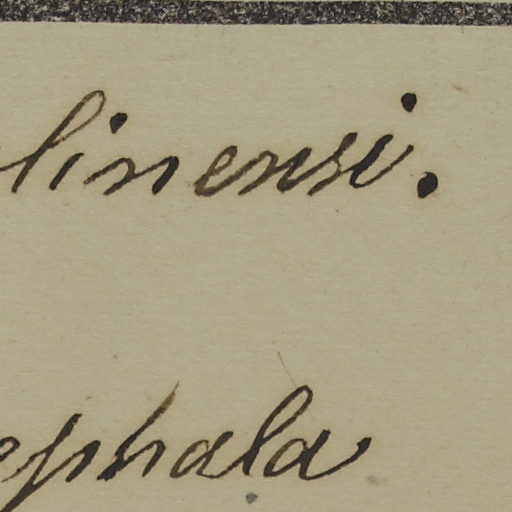 linensi.
ephala